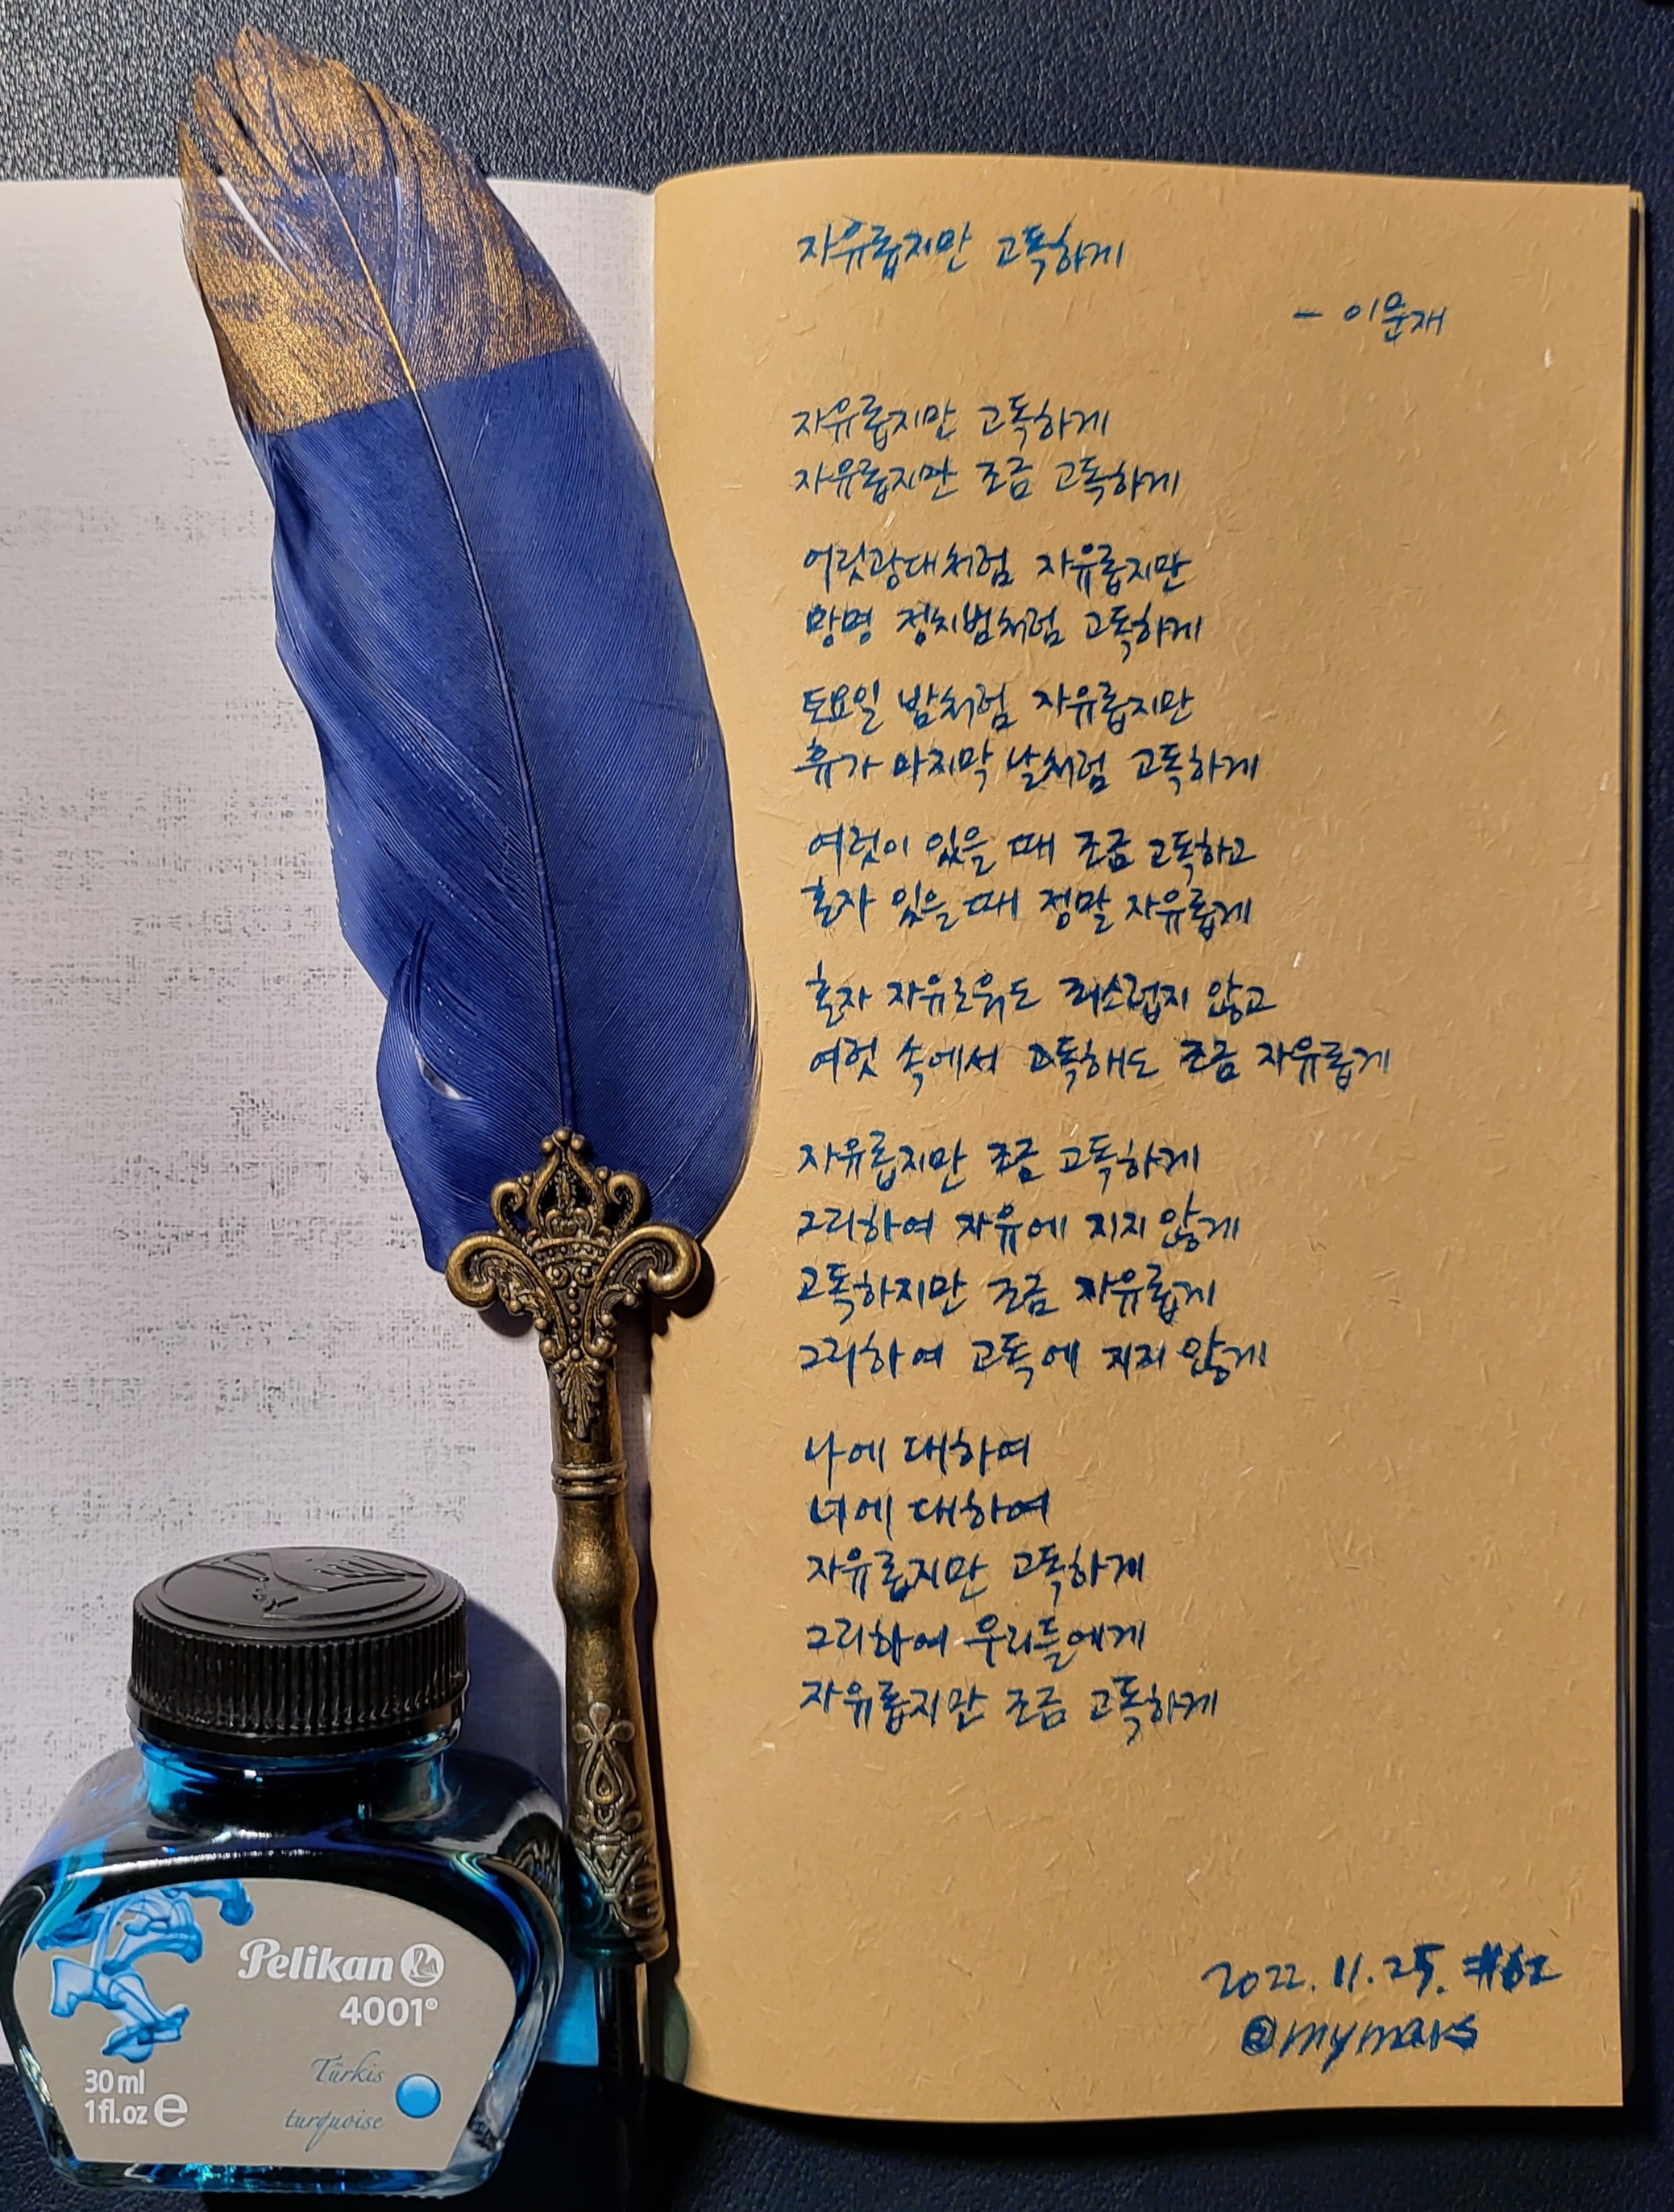 자유롭지만 고독하게
- 이문재
자유롭지만 고독하게
자유롭지만 조금 고독하게
어릿광대처럼 자유롭지만
망명 정치범처럼 고독하게
토요일 밤처럼 자유롭지만
휴가 마지막 날처럼 고독하게
여럿이 있을 때 조금 고독하고
혼자 있을 때 정말 자유롭게
혼자 자유로워도 죄스럽지 않고
여럿 속에서 고독해도 조금 자유롭게
자유롭지만 조금 고독하게
그리하여 자유에 지지 않게
고독하지만 조금 자유롭게
그리하여 고독에 지지 않게
나에 대하여
너에 대하여
자유롭지만 고독하게
그리하여 우리들에게
자유롭지만 조금 고독하게
2022. 11. 25.
@mymars
Pelikan
4001®
30 ml
1 fl.oz e
Türkis
turquoise